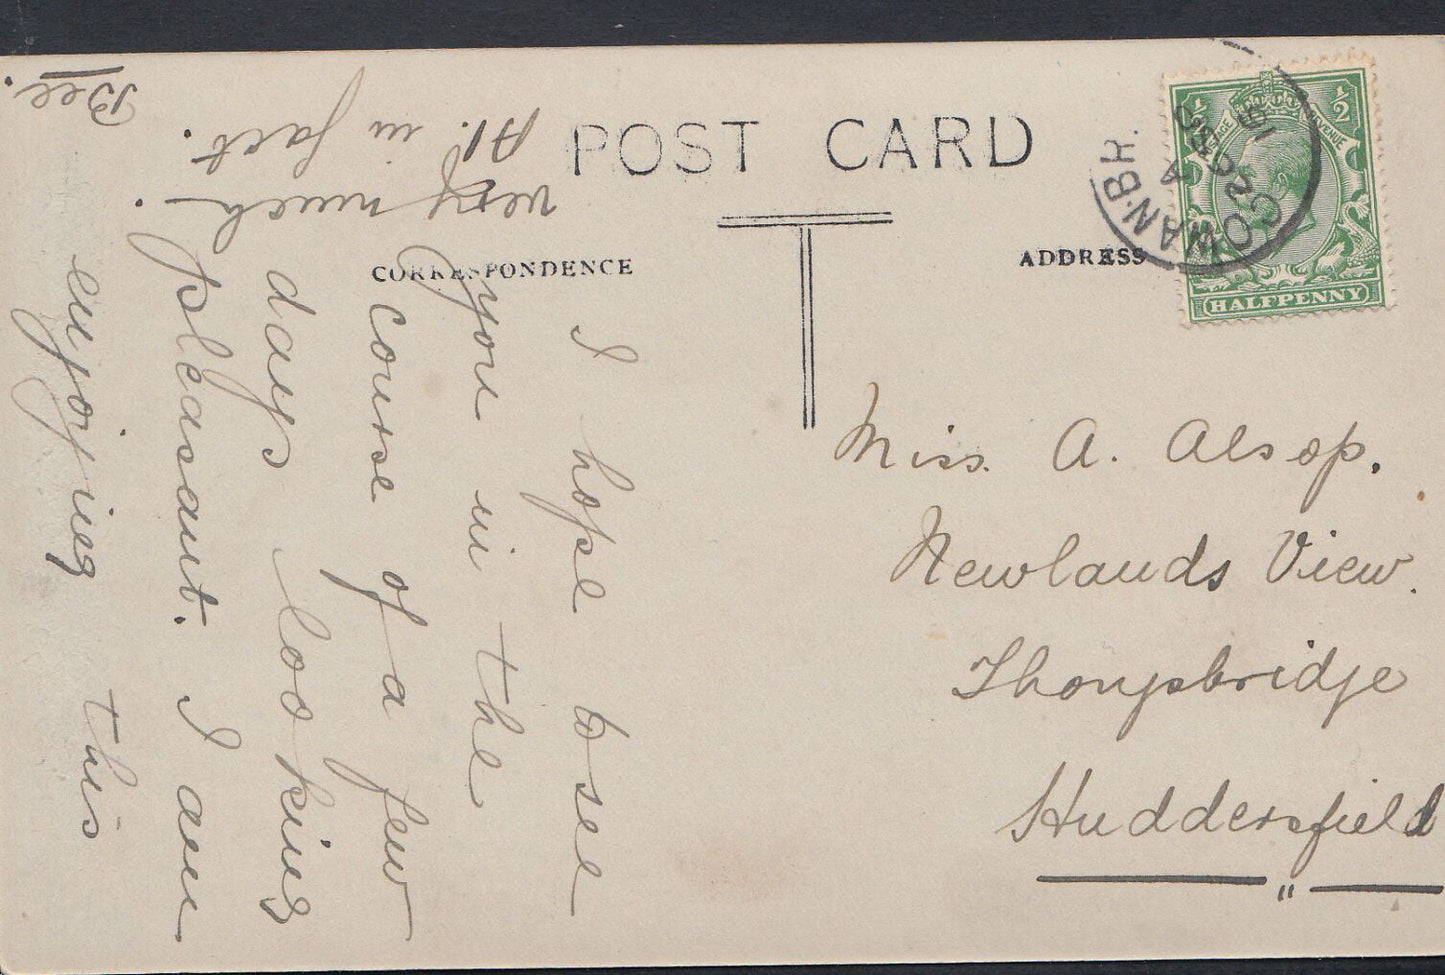 POST CARD
CORRESPONDENCE
ADDRESS
I hope to see
you in the
course of a few
days looking
pleasant. I am
enjoying this
very much.
A1. in fact.
Bee.
Miss. A. Alsop.
Newlands View.
Thongsbridge
Huddersfield
"
POSTAGE REVENUE
½ ½
HALFPENNY
OMAN·BR.
A
15